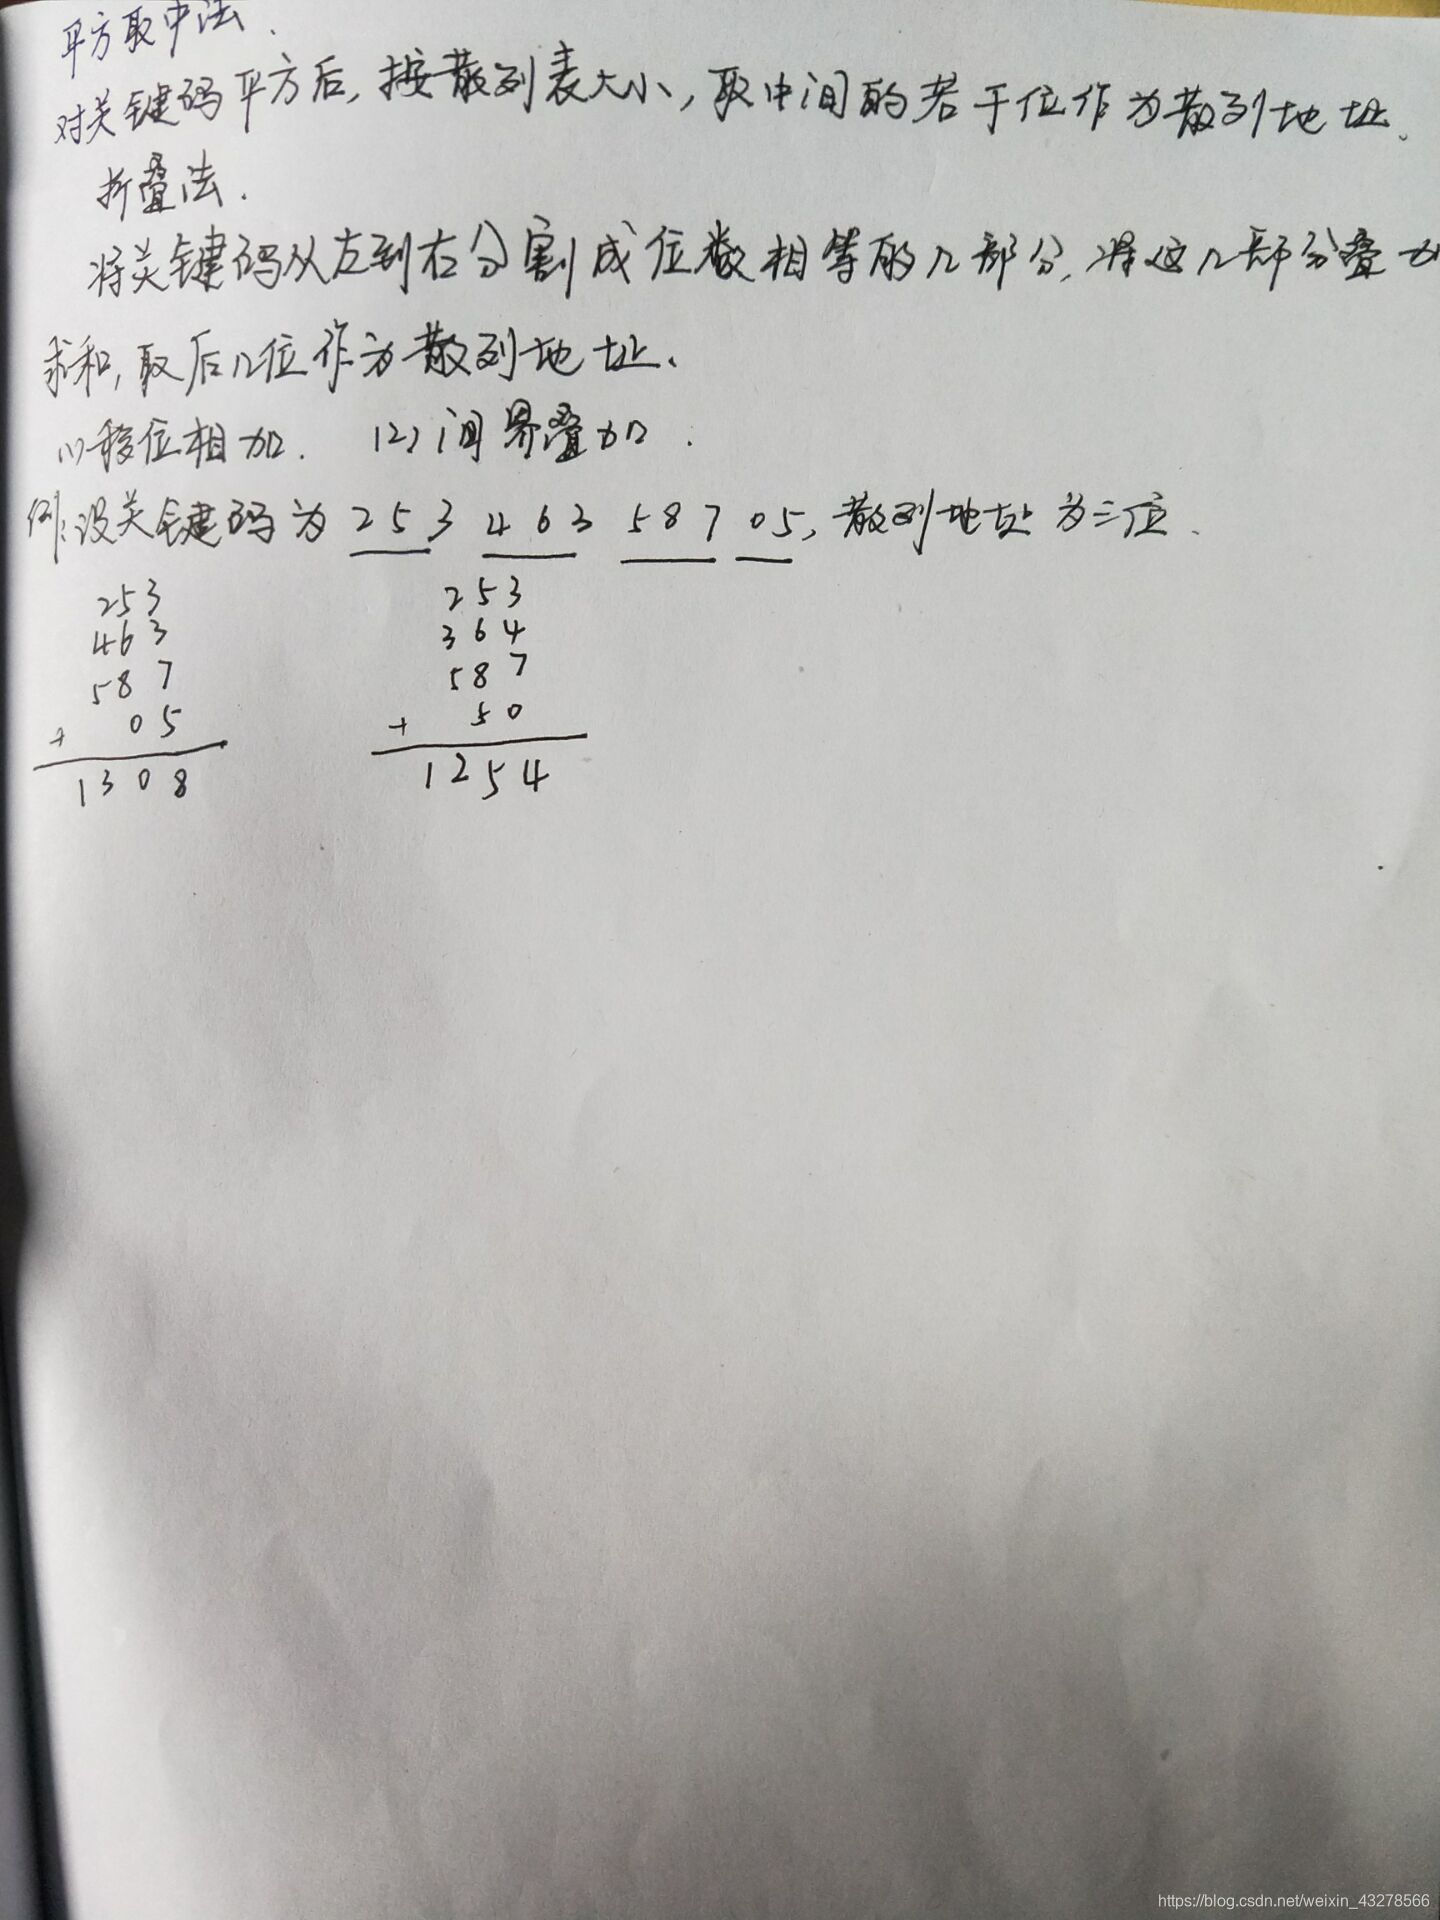 平方取中法.
对关键码平方后,按散列表大小,取中间的若干位作为散列地址.
折叠法.
将关键码从左到右分割成位数相等的几部分,将这几部分叠加
求和,取后几位作为散列地址.
(1)移位相加. (2)间界叠加.
例:设关键码为 253 463 587 05,散列地址为三位.
253
463
587
+ 05
1308
253
364
587
+ 50
1254
https://blog.csdn.net/weixin_43278566